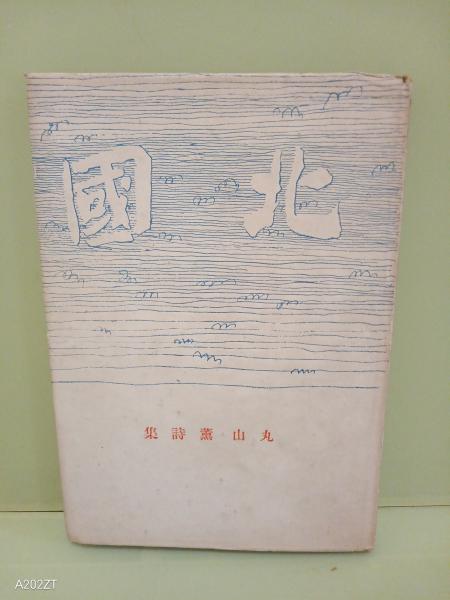 北國
丸山薫詩集
A202ZT